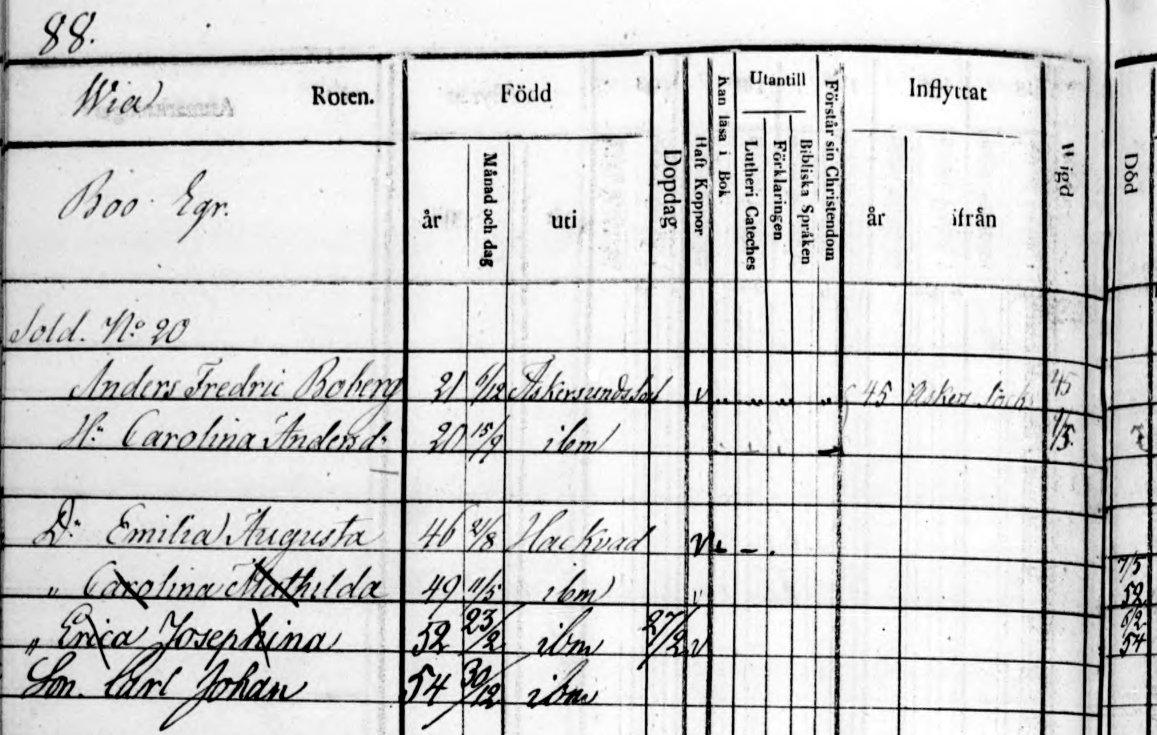 88.
Wia Roten. Född Dopdag Haft Koppor Kan läsa i Bok. Utantill Förstår sin Christendom Inflyttat Wigd Död
Boo Egr. år Månad och dag uti Lutheri Cateches Förklaringen Bibliska Språken år ifrån
Sold. No 20
Anders Fredric Boberg 21 6/12 Askersunds v " " " " 45 Askers Sock 45
H: Carolina Andersd: 20 15/9 ibm 9/5
D: Emilia Augusta 46 21/8 Hackvad v
" Carolina Mathilda 49 11/5 ibm " 7/5 52
" Erica Josephina 52 23/2 ibm 27/2 v 6/2 54
Son. Carl Johan 54 30/12 ibm